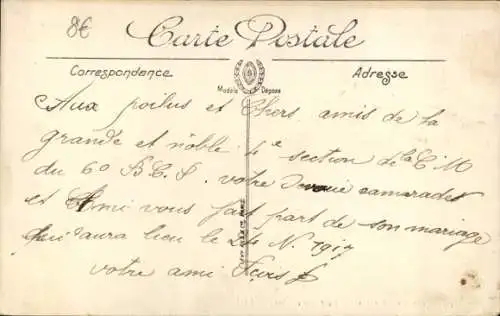 8€
Carte Postale
Correspondance
Adresse
Modèle Déposé
Aux poilus et Chers amis de la
grande et noble 4e section de la C M
du 60 B.C.P. votre dévoué camarade
et Ami vous fait part de son mariage
qui aura lieu le 24 N. 1917
votre ami